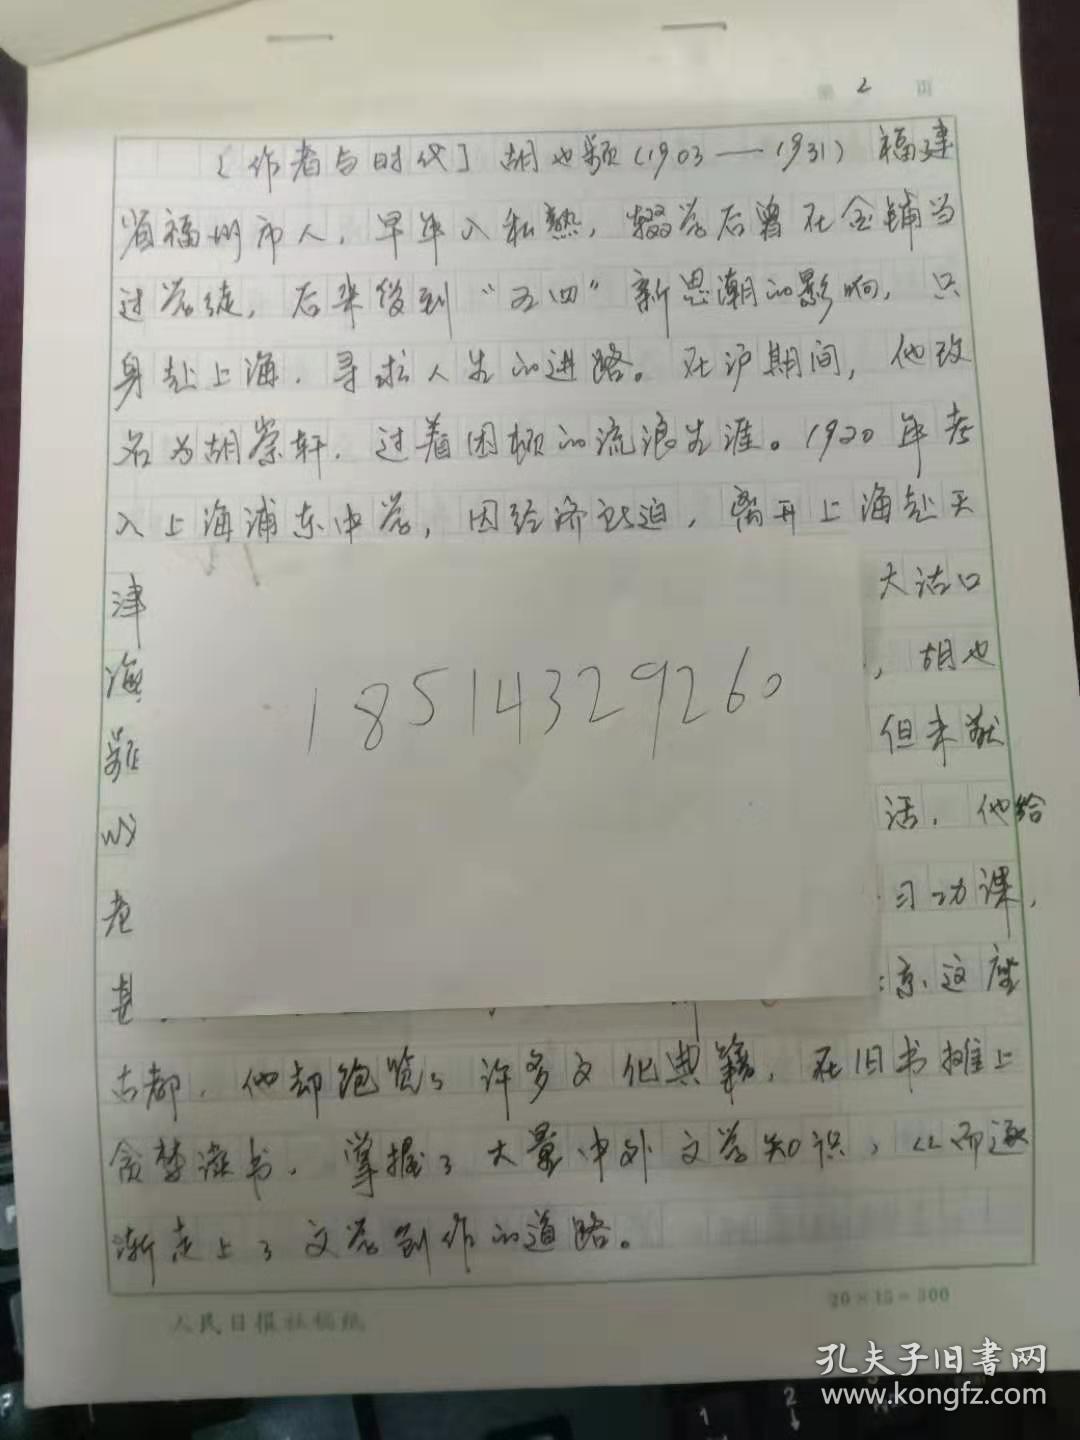 第 2 页
〔作者与时代〕胡也频(1903——1931) 福建
省福州市人，早年入私熟，辍学后曾在金铺当
过学徒，后来受到“五四”新思潮的影响，只
身赴上海，寻求人生的进路。在沪期间，他改
名为胡崇轩，过着困顿的流浪生涯。1920年考
入上海浦东中学，因经济所迫，离开上海赴天
津 大沽口
海 ，胡也
频 但未献
活，他给
老 习功课，
京这座
18514329260
古都，他却饱览了许多文化典籍，在旧书摊上
贪婪读书，掌握了大量中外文学知识，从而逐
渐走上了文学创作的道路。
人民日报社稿纸
20×15=300
孔夫子旧書网
www.kongfz.com
1
2